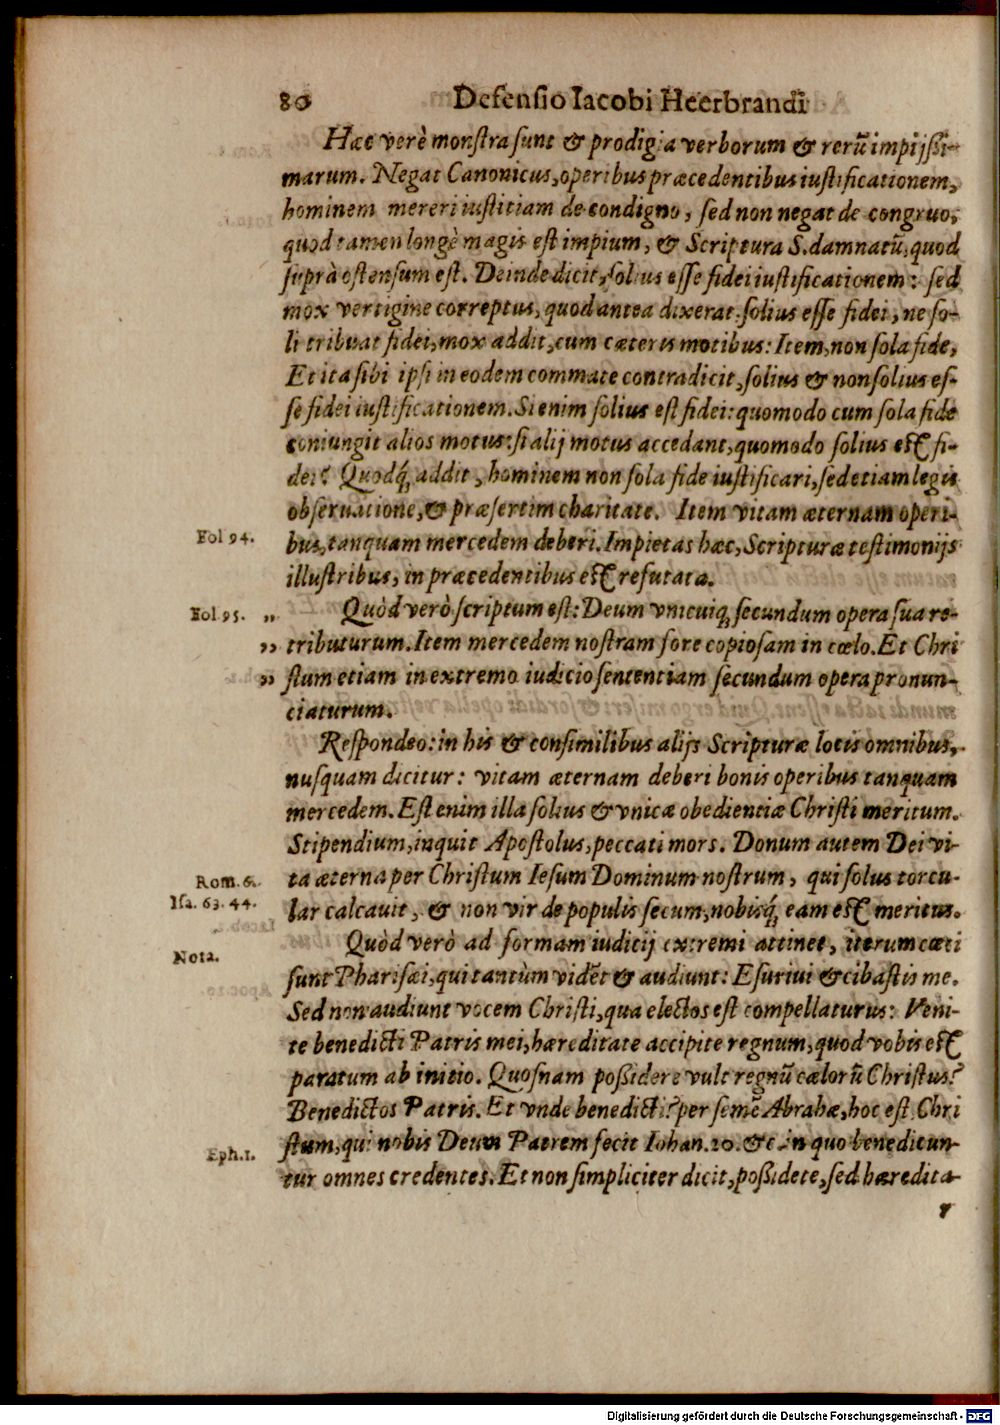 80 Defensio Iacobi Heerbrandi
Hæc verè monstra sunt & prodigia verborum & rerũ impijßi-
marum. Negat Canonicus, operibus præcedentibus iustificationem,
hominem mereri iustitiam de condigno, sed non negat de congruo,
quod tamen longè magis est impium, & Scriptura S. damnatũ, quod
suprà ostensum est. Deinde dicit, solius esse fidei iustificationem: sed
mox vertigine correptus, quod antea dixerat solius esse fidei, ne so-
li tribuat fidei, mox addit, cum cæteris motibus: Item, non sola fide,
Et ita sibi ipsi in eodem commate contradicit, solius & non solius es-
se fidei iustificationem. Si enim solius est fidei: quomodo cum sola fide
coniungit alios motus: si alij motus accedant, quomodo solius est fi-
dei? Quodq́; addit, hominem non sola fide iustificari, sed etiam legis
obseruatione, & præsertim charitate. Item vitam æternam operi-
Fol 94. bus, tanquam mercedem deberi. Impietas hæc, Scripturæ testimonijs
illustribus, in præcedentibus est refutata.
Fol 95. „ Quòd verò scriptum est: Deum vnicuiq; secundum opera sua re-
„ tributurum. Item mercedem nostram fore copiosam in cœlo. Et Chri
„ stum etiam in extremo iudicio sententiam secundum opera pronun-
ciaturum.
Respondeo: in his & consimilibus alijs Scripturæ locis omnibus,
nusquam dicitur: vitam æternam deberi bonis operibus tanquam
mercedem. Est enim illa solius & vnicæ obedientiæ Christi meritum.
Stipendium, inquit Apostolus, peccati mors. Donum autem Dei vi-
Rom. 6. ta æterna per Christum Iesum Dominum nostrum, qui solus torcu-
Isa. 63. 44. lar calcauit, & non vir de populis secum, nobisq́; eam est meritus.
Quòd verò ad formam iudicij extremi attinet, iterum cæci
Nota. sunt Pharisæi, qui tantùm vidẽt & audiunt: Esuriui & cibastis me.
Sed non audiunt vocem Christi, qua electos est compellaturus: Veni-
te benedicti Patris mei, hæreditate accipite regnum, quod vobis est
paratum ab initio. Quosnam poßidere vult regnũ cælorũ Christus?
Benedictos Patris. Et vnde benedicti? per semẽ Abrahæ, hoc est Chri
stum, qui nobis Deum Patrem fecit Iohan. 20. &c in quo benedicun-
Eph. 1. tur omnes credentes. Et non simpliciter dicit, poßidete, sed hæredita-
Digitalisierung gefördert durch die Deutsche Forschungsgemeinschaft - DFG